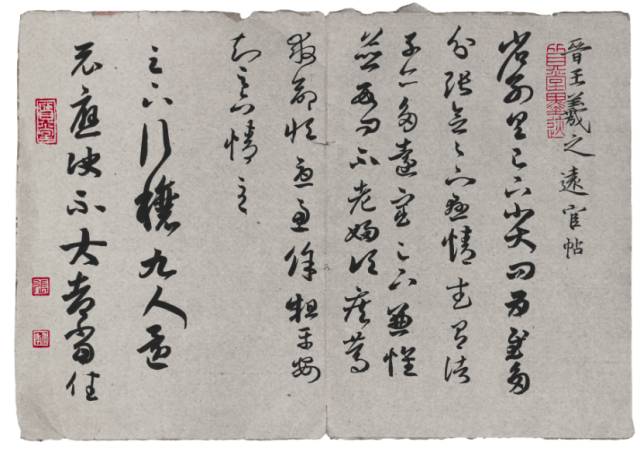 晉王羲之遠宦帖
省別具足下小大問為慰多
分張念足下懸情武昌諸
子亦多遠宦足下兼懷
並數問不老婦頃疾篤
救命恒憂慮餘粗平安
知足下情至
足下行穰九人還
示應決不大都當佳